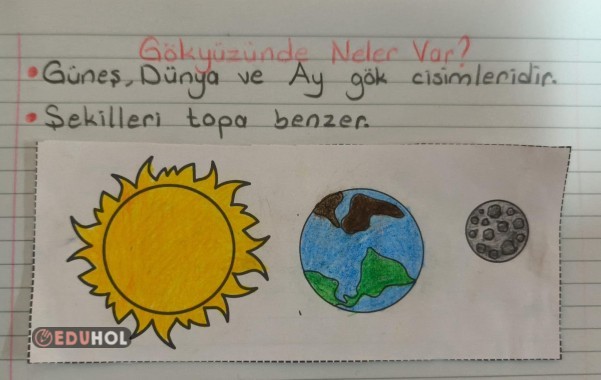 Gökyüzünde Neler Var?
• Güneş, Dünya ve Ay gök cisimleridir.
• Şekilleri topa benzer.
EDUHOL